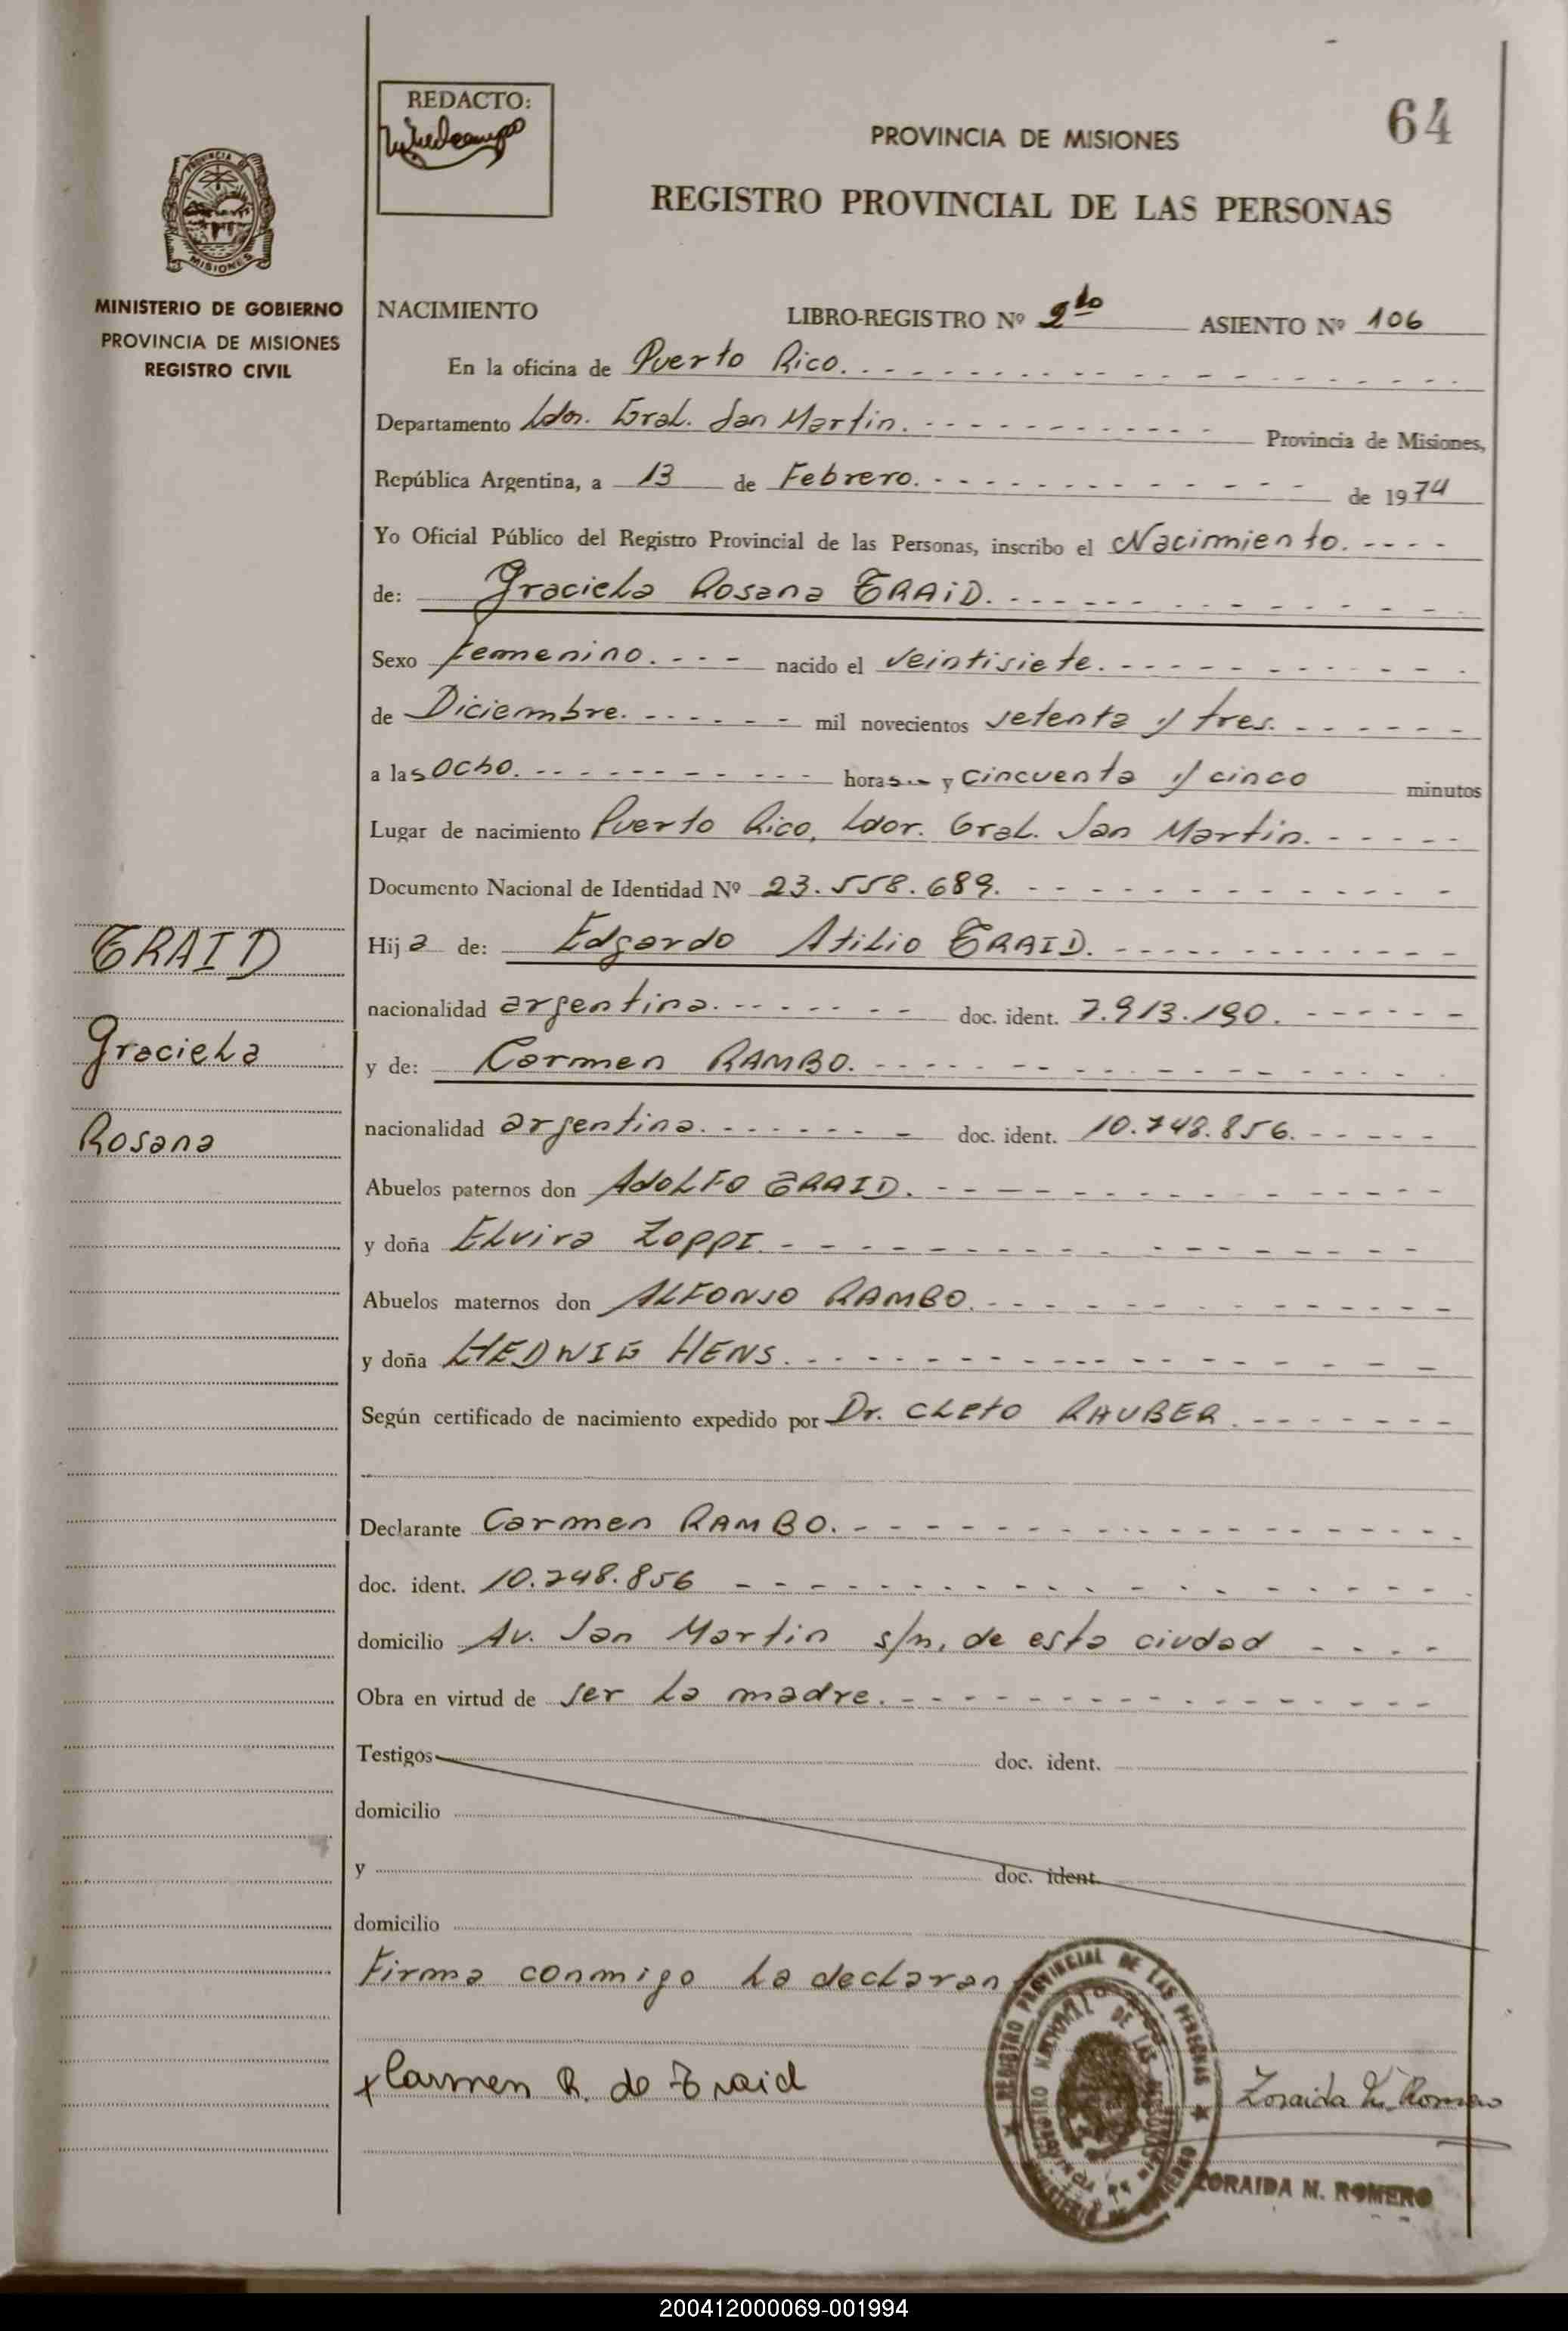 64
REDACTO:
PROVINCIA DE MISIONES
REGISTRO PROVINCIAL DE LAS PERSONAS
PROVINCIA DE MISIONES
MINISTERIO DE GOBIERNO
PROVINCIA DE MISIONES
REGISTRO CIVIL
NACIMIENTO LIBRO-REGISTRO Nº 2do ASIENTO Nº 106
En la oficina de Puerto Rico.
Departamento Ldor. Gral. San Martin. Provincia de Misiones,
República Argentina, a 13 de Febrero. de 1974
Yo Oficial Público del Registro Provincial de las Personas, inscribo el Nacimiento.
de: Graciela Rosana TRAID.
Sexo femenino. nacido el veintisiete.
de Diciembre. mil novecientos setenta y tres.
a las ocho. horas y cincuenta y cinco minutos
Lugar de nacimiento Puerto Rico, Ldor. Gral. San Martin.
Documento Nacional de Identidad Nº 23.558.689.
TRAID
Hija de: Edgardo Atilio TRAID.
nacionalidad argentina. doc. ident. 7.913.190.
Graciela
y de: Carmen RAMBO.
Rosana
nacionalidad argentina. doc. ident. 10.748.856.
Abuelos paternos don AdoLFO TRAID.
y doña Elvira Zoppi.
Abuelos maternos don ALFONSO RAMBO.
y doña HEDWIG HENS.
Según certificado de nacimiento expedido por Dr. CLeto RAUBER.
Declarante Carmen RAMBO.
doc. ident. 10.748.856
domicilio Av. San Martin s/n, de esta ciudad
Obra en virtud de ser la madre.
Testigos doc. ident.
domicilio
y doc. ident.
domicilio
Firma conmigo la declaran
Carmen R. de Traid
REGISTRO PROVINCIAL DE LAS PERSONAS
Zoraida M. Romero
ZORAIDA M. ROMERO
200412000069-001994